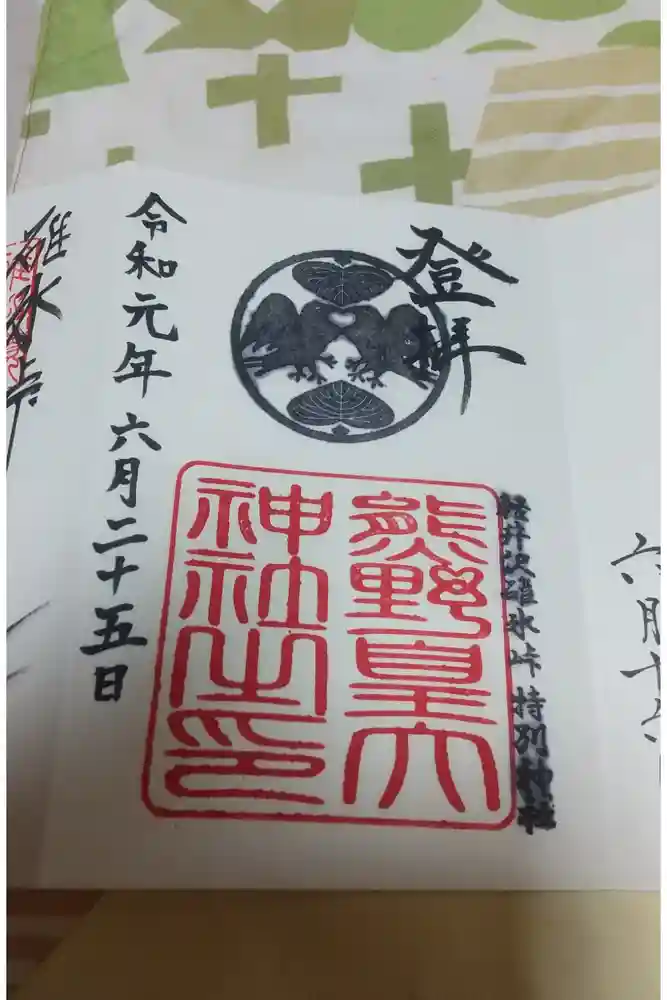 登拝
軽井沢碓氷峠 特別神社
熊野皇大
神社之印
令和元年六月二十五日
碓氷峠
六月十六